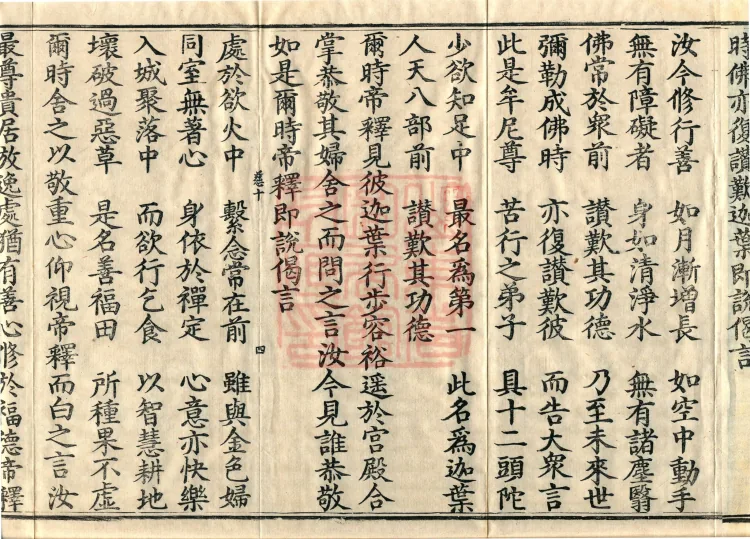 時佛亦復讃歎迦葉即説偈言
汝今修行善 如月漸增長 如空中動手
無有障礙者 身如清淨水 無有諸塵翳
佛常於衆前 讃歎其功德 乃至未來世
彌勒成佛時 亦復讃歎彼 而告大衆言
此是牟尼尊 苦行之弟子 具十二頭陀
少欲知足中 最名爲第一 此名爲迦葉
人天八部前 讃歎其功德
爾時帝釋見彼迦葉行步容裕遥於宫殿合
掌恭敬其婦舍之而問之言汝今見誰恭敬
如是爾時帝釋即説偈言
惡十 四
處於欲火中 繫念常在前 雖與金色婦
同室無著心 身依於禪定 心意亦快樂
入城聚落中 而欲行乞食 以智慧耕地
壞破過惡草 是名善福田 所種果不虛
爾時舍之以敬重心仰視帝釋而白之言汝
最尊貴居放逸處猶有善心修於福德帝釋